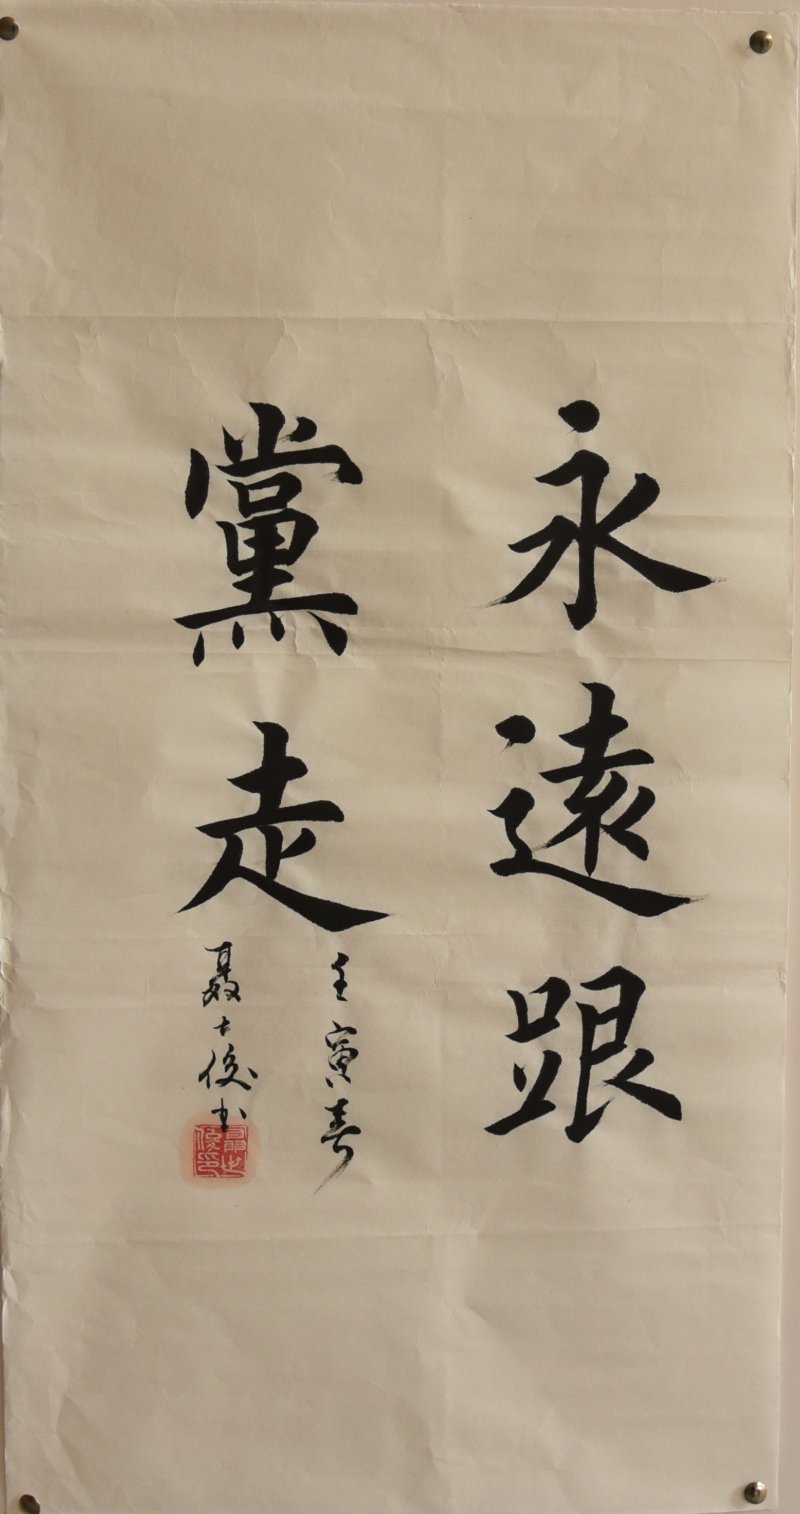 永遠跟
黨走
壬寅春
聂士俊书